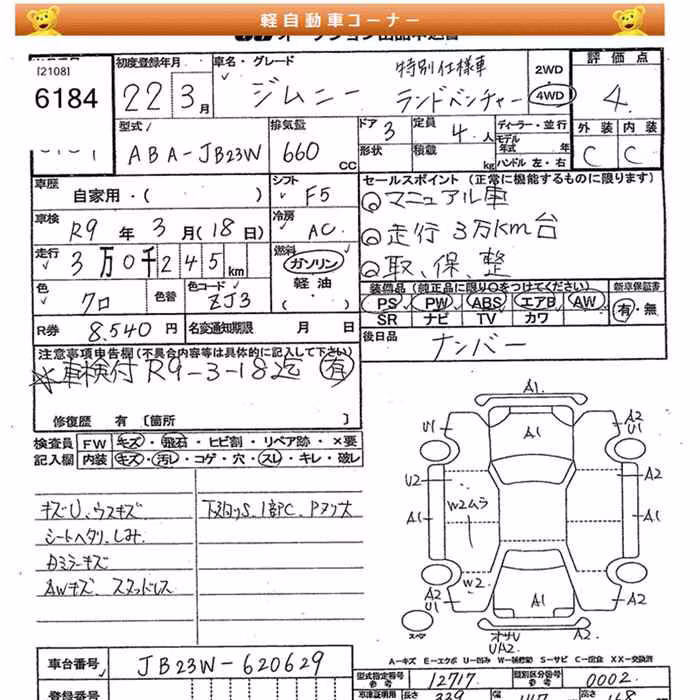 軽自動車コーナー
[2108]
6184
初度登録年月
22 3月
車名・グレード
ジムニー 特別仕様車
ランドベンチャー
2WD
4WD
評価点
4
型式
ABA-JB23W
排気量
660 CC
ドア 3
形状
定員 4人
積載 kg
ディーラー・並行
モデル年式 年
ハンドル 左・右
外装 内装
C C
車歴
自家用・( )
シフト
F5
車検
R9年 3月(18日)
冷房
AC
走行
3万0千245km
燃料
ガソリン
軽油
( )
色
クロ
色替
色コード
ZJ3
R券 8,540円
名変通知期限 月 日
セールスポイント(正常に機能するものに限ります)
マニュアル車
走行 3万km台
取、保、整
装備品(純正品に限り○をつけてください) 新車保証書
PS PW ABS エアB AW 有・無
SR ナビ TV カワ
後日品
ナンバー
注意事項申告欄(不具合内容等は具体的に記入して下さい)
車検付 R9-3-18迄 有
修復歴 有 [箇所 ]
検査員 FW キズ・飛石・ヒビ割・リペア跡・×要
記入欄 内装 キズ・汚レ・コゲ・穴・スレ・キレ・破レ
キズU、ウスキズ
シートヘタリ、シミ、
カミラーキズ
AWキズ、スタッドレス
下廻りS、1部C、Pアリ大
A1
U1 A1 A2
U1
U2 W2ムラ A2
A1 A1
W2
A2
U1 A1 A2
スペア
オサレ
UA2 A2
A-キズ E-エクボ U-凹み W-補修跡 S-サビ C-腐食 XX-交換済
車台番号
JB23W-620629
型式指定番号 12717
類別区分番号 0002
登録番号
長さ 339
幅 147
高さ 168